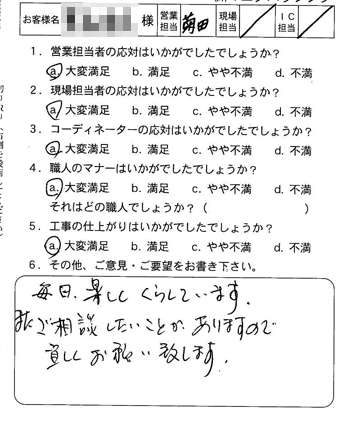 お客様名 様 営業担当 菊田 現場担当 IC担当
1．営業担当者の応対はいかがでしたでしょうか？
a. 大変満足 b. 満足 c. やや不満 d. 不満
2．現場担当者の応対はいかがでしたでしょうか？
a. 大変満足 b. 満足 c. やや不満 d. 不満
3．コーディネーターの応対はいかがでしたでしょうか？
a. 大変満足 b. 満足 c. やや不満 d. 不満
4．職人のマナーはいかがでしたでしょうか？
a. 大変満足 b. 満足 c. やや不満 d. 不満
それはどの職人でしょうか？（ ）
5．工事の仕上がりはいかがでしたでしょうか？
a. 大変満足 b. 満足 c. やや不満 d. 不満
6．その他、ご意見・ご要望をお書き下さい。
毎日、楽しくくらしています。
またご相談したいことがありますので
宜しくお願い致します。